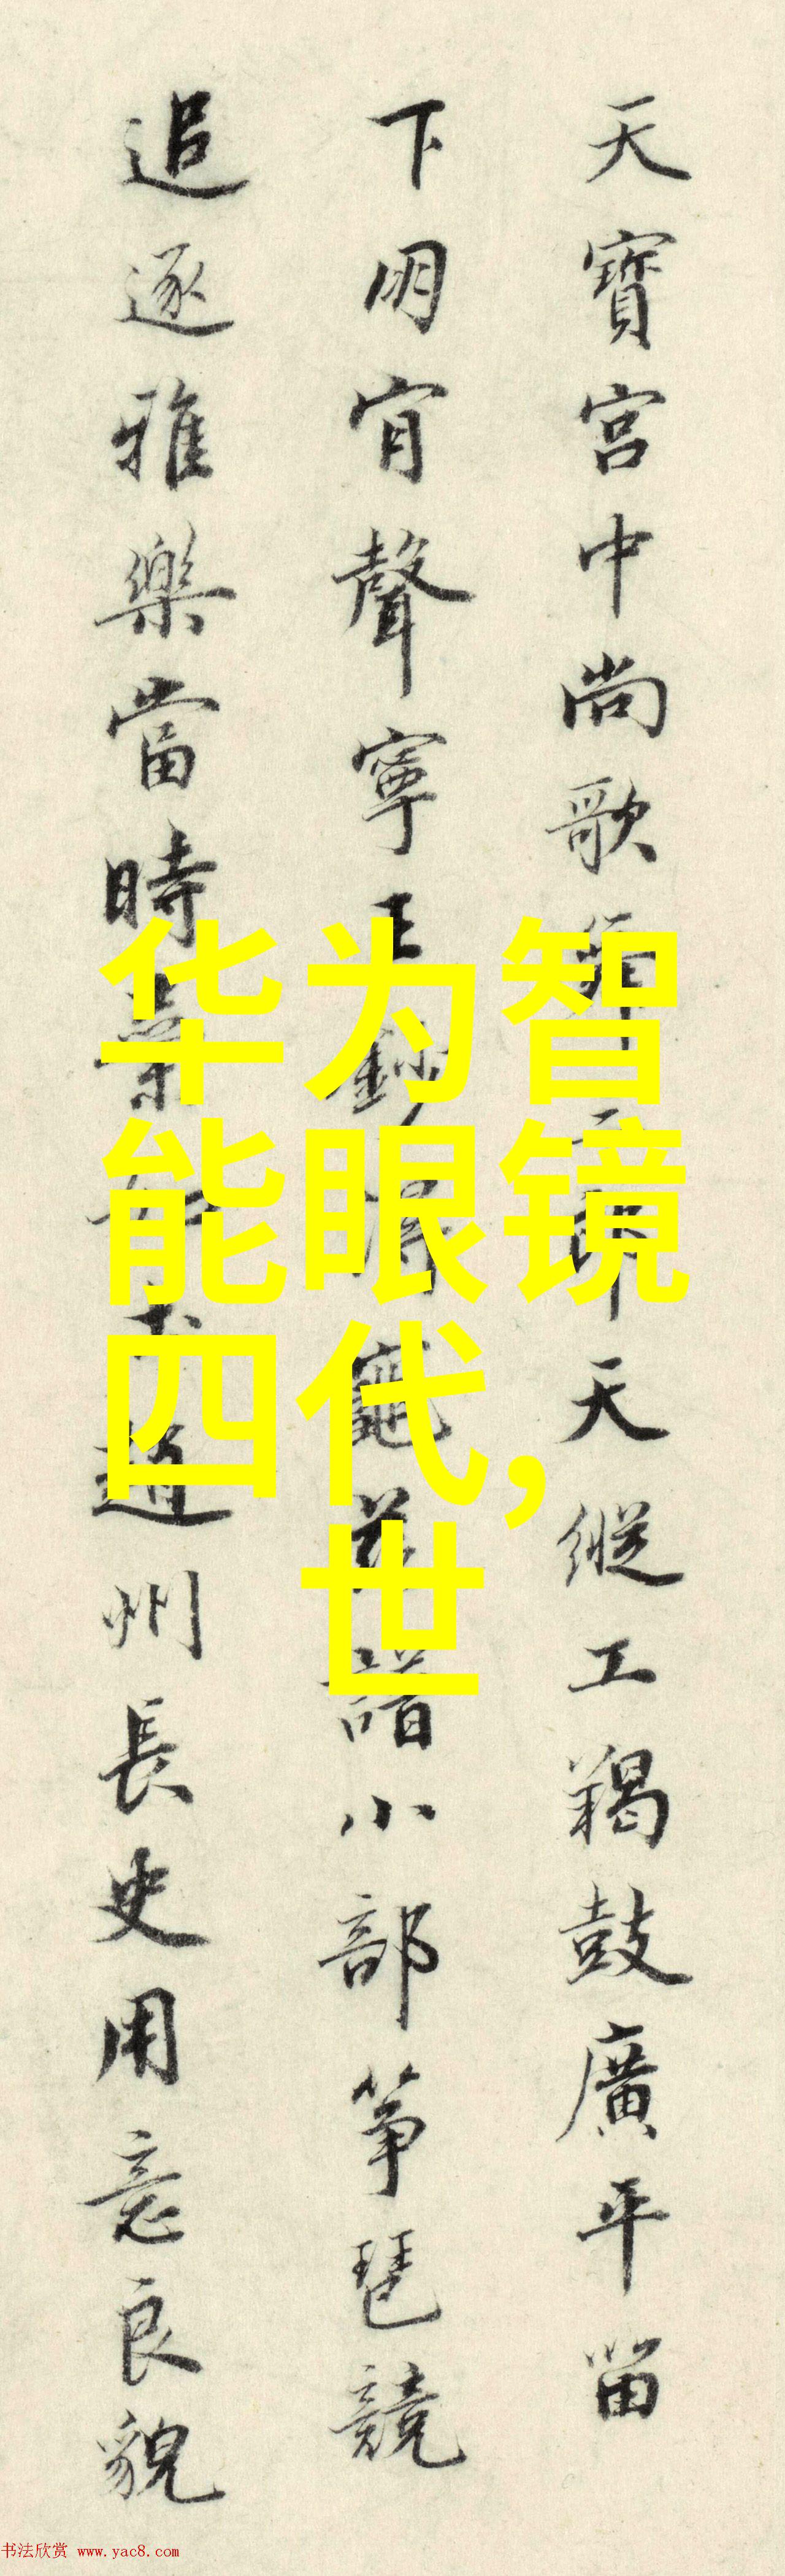 天寶宮中尚歌舞 郎天縱工羯鼓廣平留
下用宵聲寧王 龜茲譜小部筝琶競
追逐雅樂當時 趙州長史用意良貌
华为智
能眼镜
四代,
世
书法欣赏 www.yac8.com